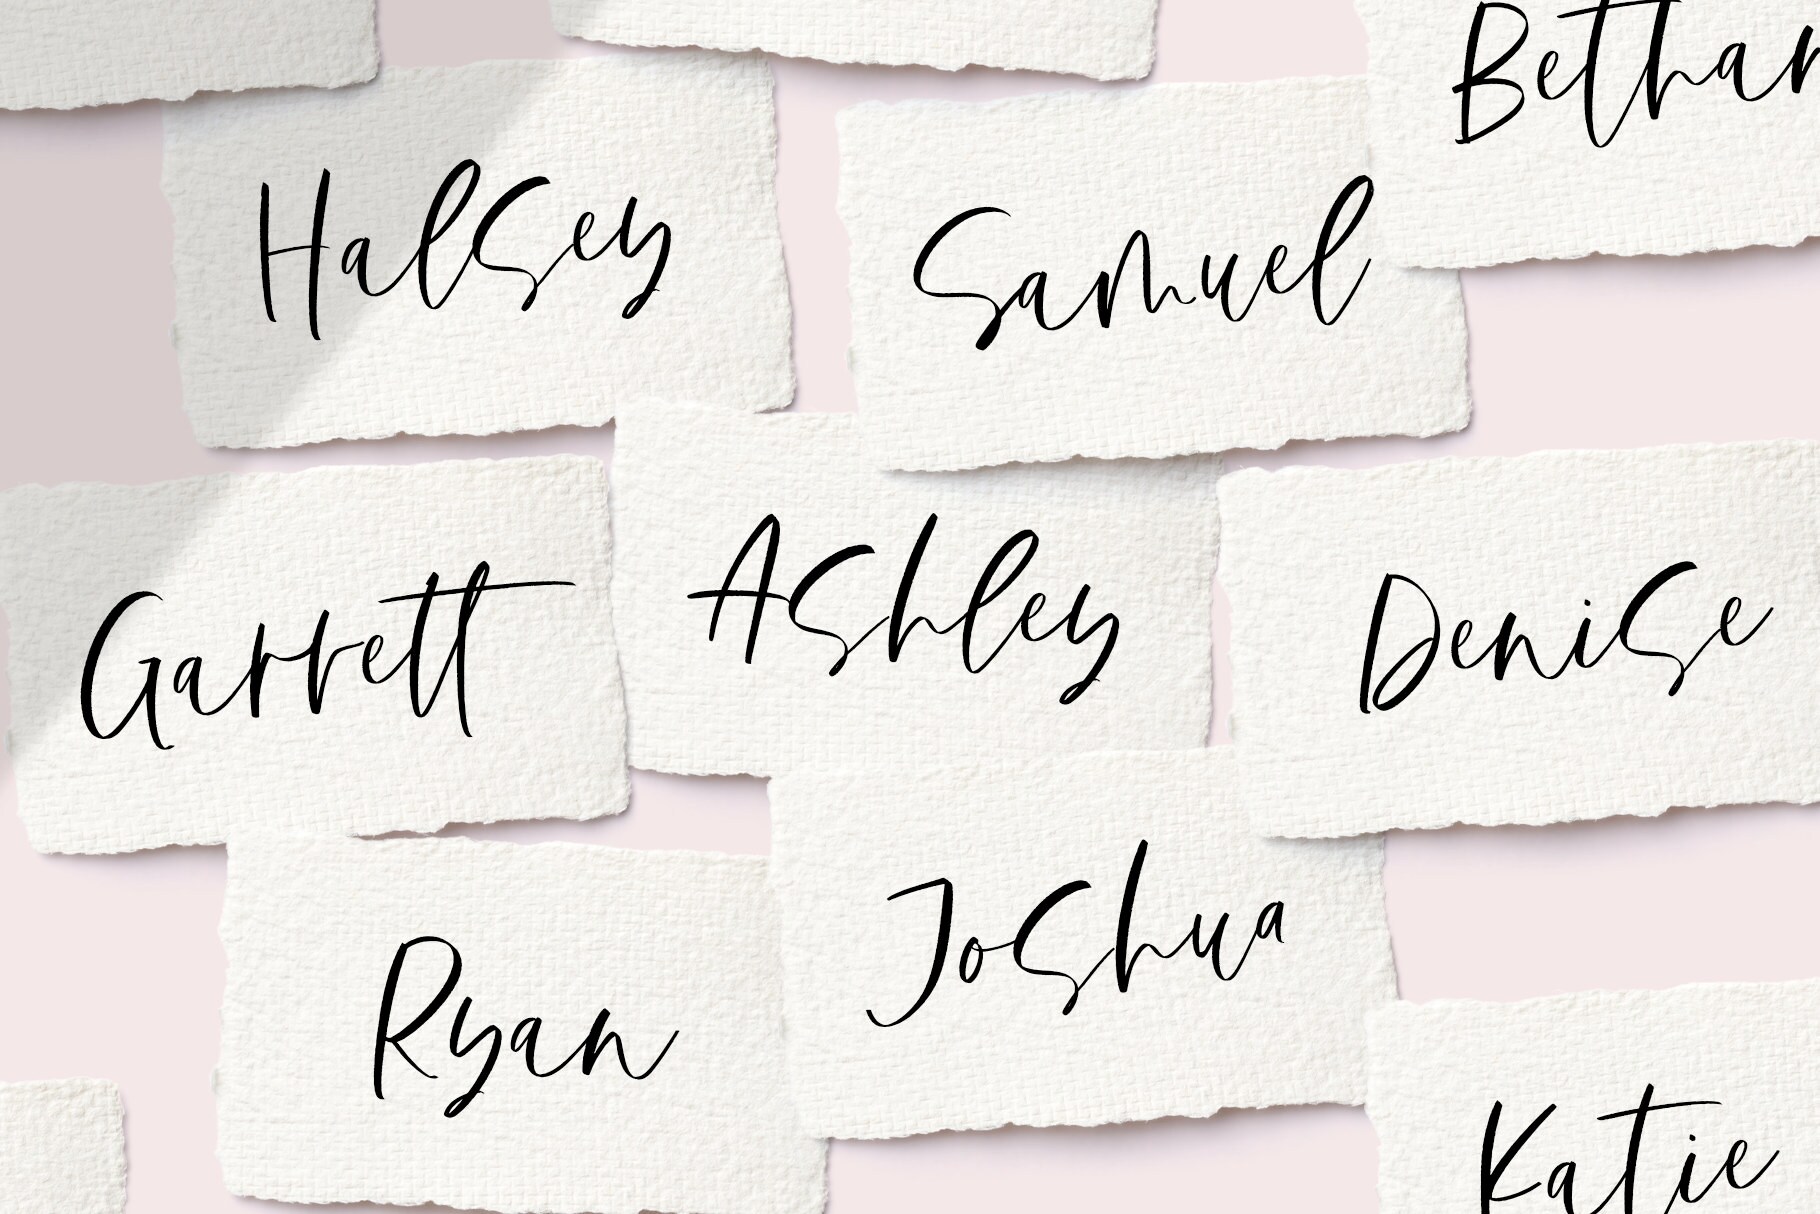 Bethan
Halsey
Samuel
Garrett
Ashley
Denise
Ryan
Joshua
Katie